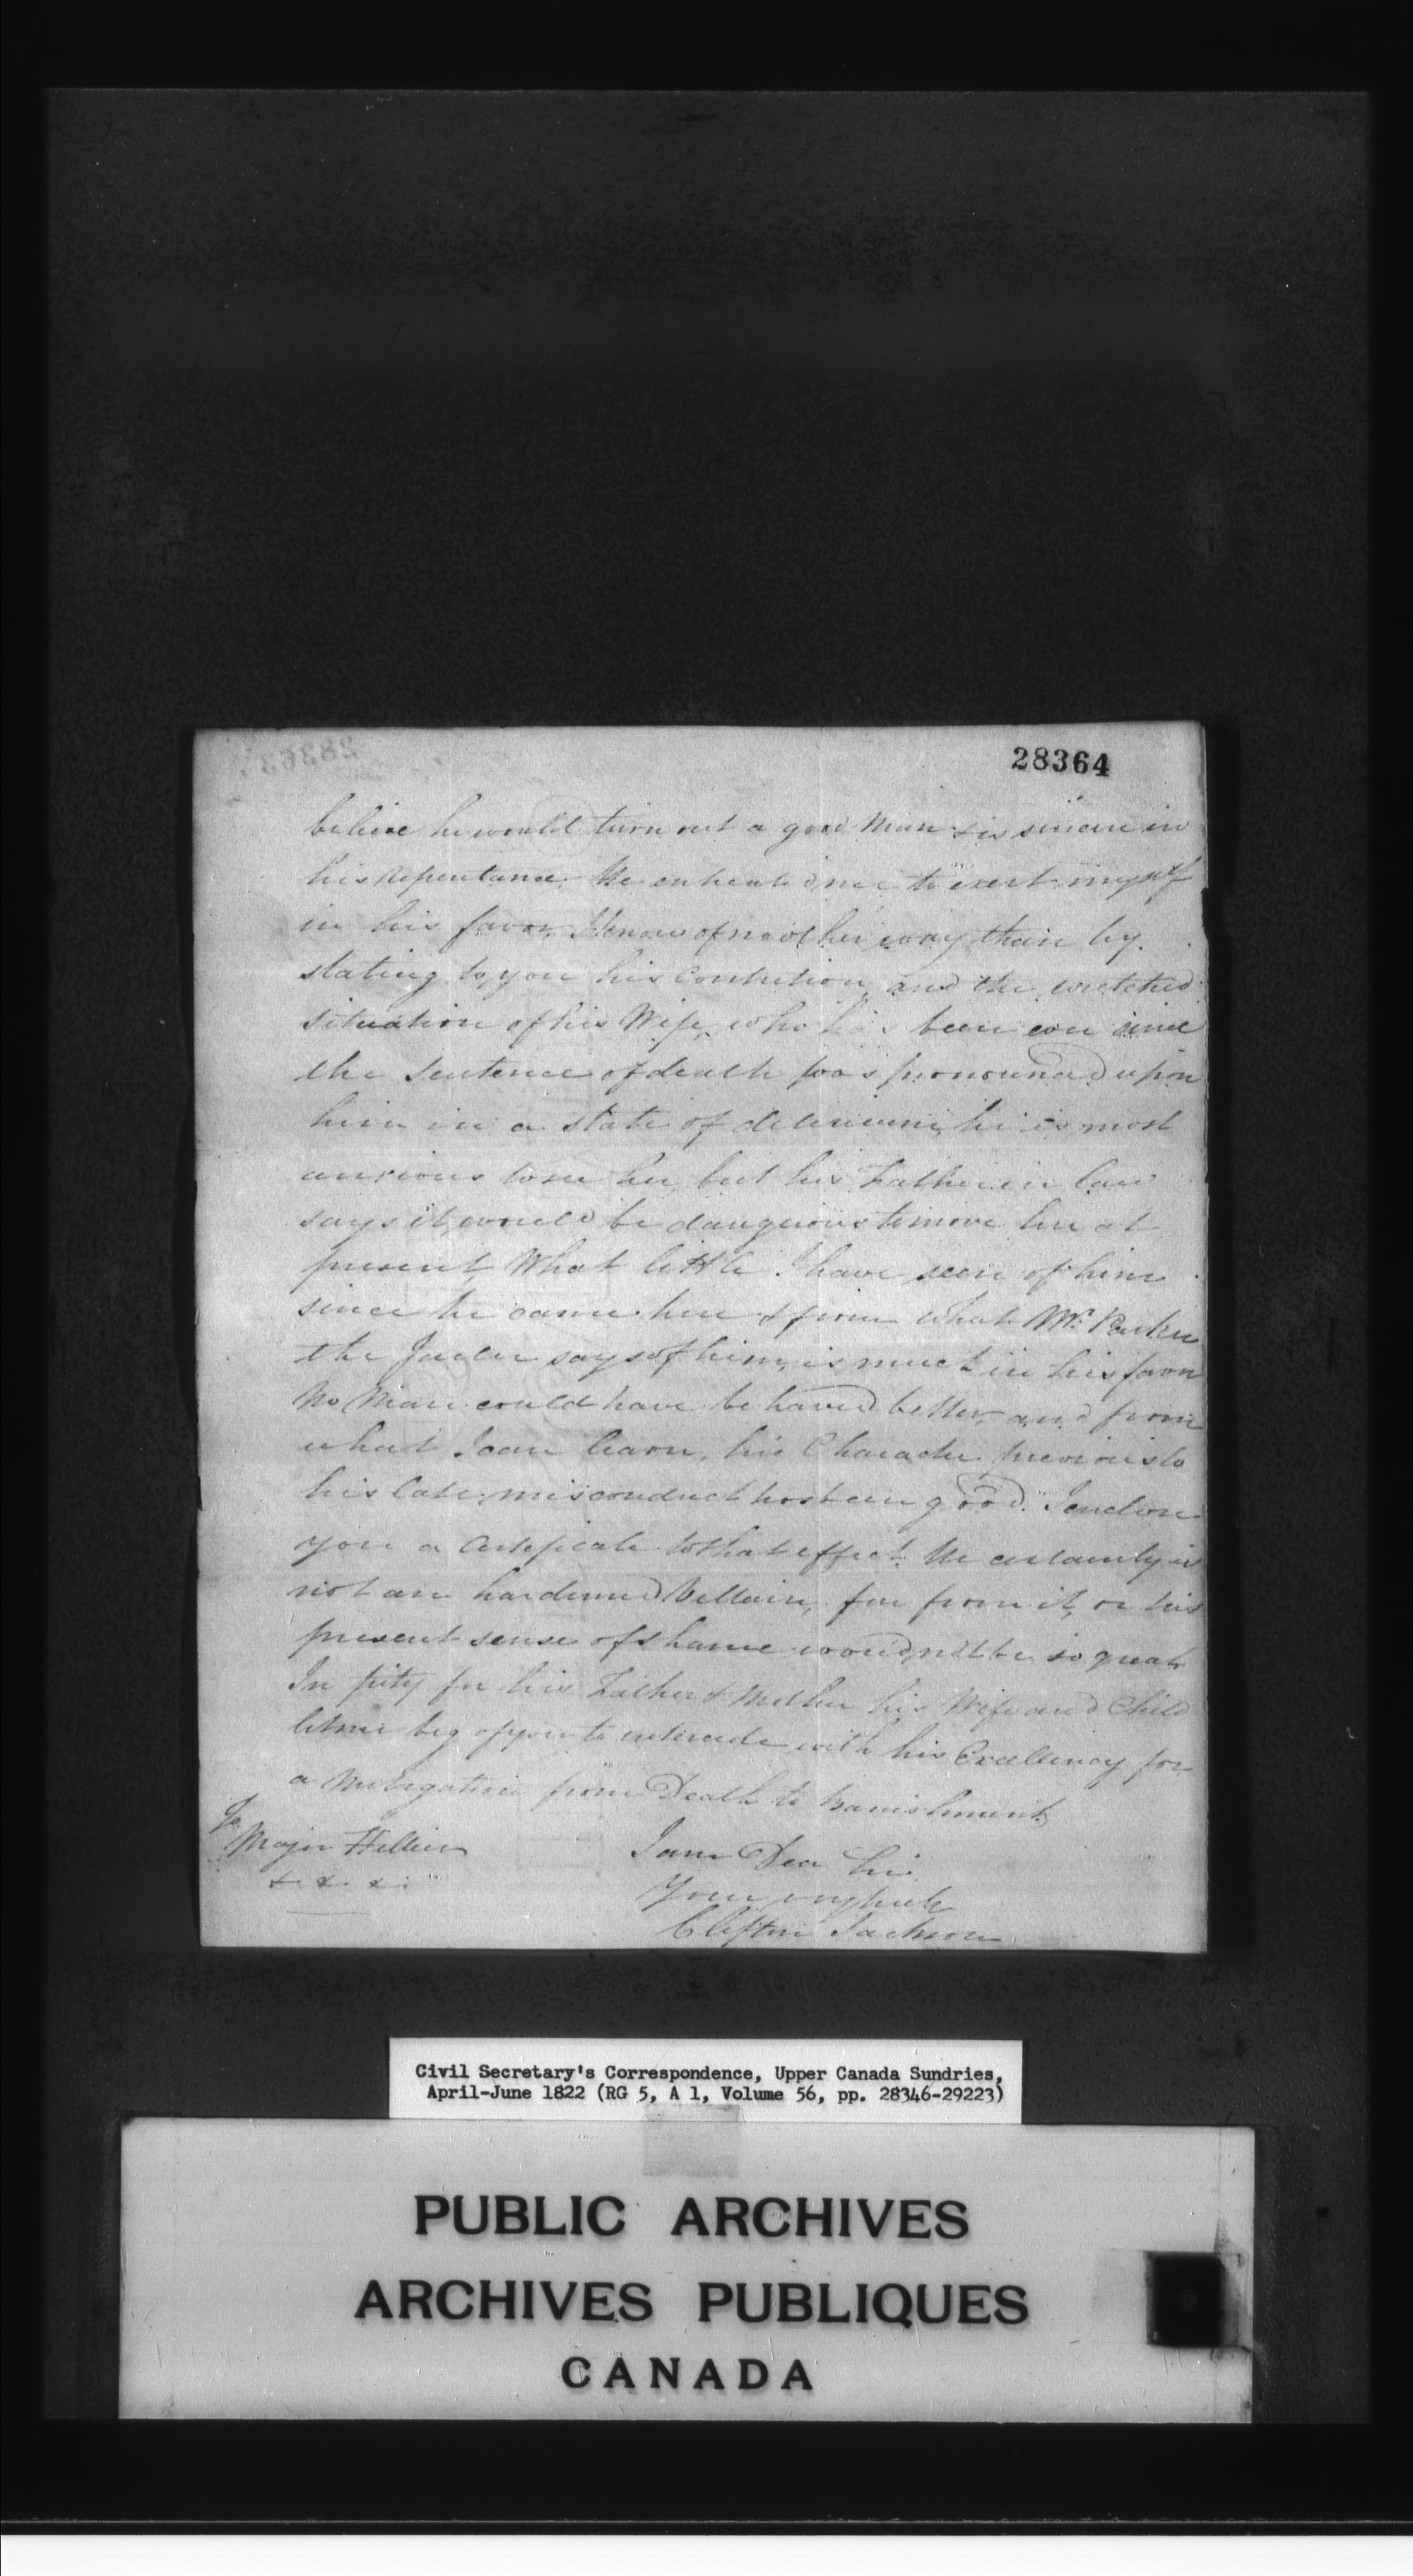 28364
believe he would turn out a good Man & is sincere in
his repentance. He entreated me to exert myself
in his favor, I know of no other way than by
stating to you his Contrition and the wretched
situation of his Wife, who has been ever since
the Sentence of death was pronounced upon
him in a state of delerium, he is most
anxious to see her, but his Father in law
says it would be dangerous to move her at
present, What little I have seen of him
since he came here & from what Mr. Parker
the Jailer says of him, is much in his favor
No Man could have behaved better, and from
what I can learn, his Character previous to
his late misconduct has been good. I enclose
you a Certificate to that effect. He certainly is
not an hardened Villain, far from it, or his
present sense of shame would not be so great
In pity for his Father & Mother his Wife and Child
let me beg of you to intercede with his Excellency for
a Mitigation from Death to banishment.
To
Major Hillier
&. &. &.
I am Dear Sir
Your
Clifton Jackson
Civil Secretary's Correspondence, Upper Canada Sundries,
April-June 1822 (RG 5, A 1, Volume 56, pp. 28346-29223)
PUBLIC ARCHIVES
ARCHIVES PUBLIQUES
CANADA